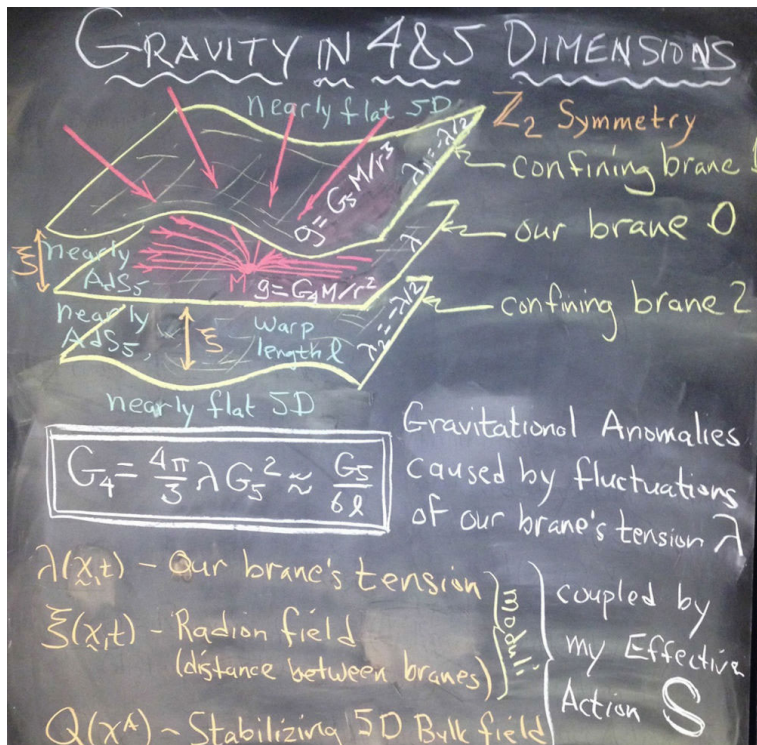 GRAVITY IN 4&5 DIMENSIONS
nearly flat 5D
Z₂ Symmetry
λ₁=-λ/2
confining brane 1
g=G₅M/r³
λ
our brane 0
ξ
nearly
AdS₅
M
g=G₄M/r²
confining brane 2
nearly
AdS₅
ξ
warp
length ℓ
λ₂=-λ/2
nearly flat 5D
G₄ = 4π/3 λ G₅² ≈ G₅/6ℓ
Gravitational Anomalies
caused by fluctuations
of our brane's tension λ
λ(x,t) - Our brane's tension
ξ(x,t) - Radion field
(distance between branes)
moduli
Q(xᴬ) ~ Stabilizing 5D Bulk field
coupled by
my Effective
Action S